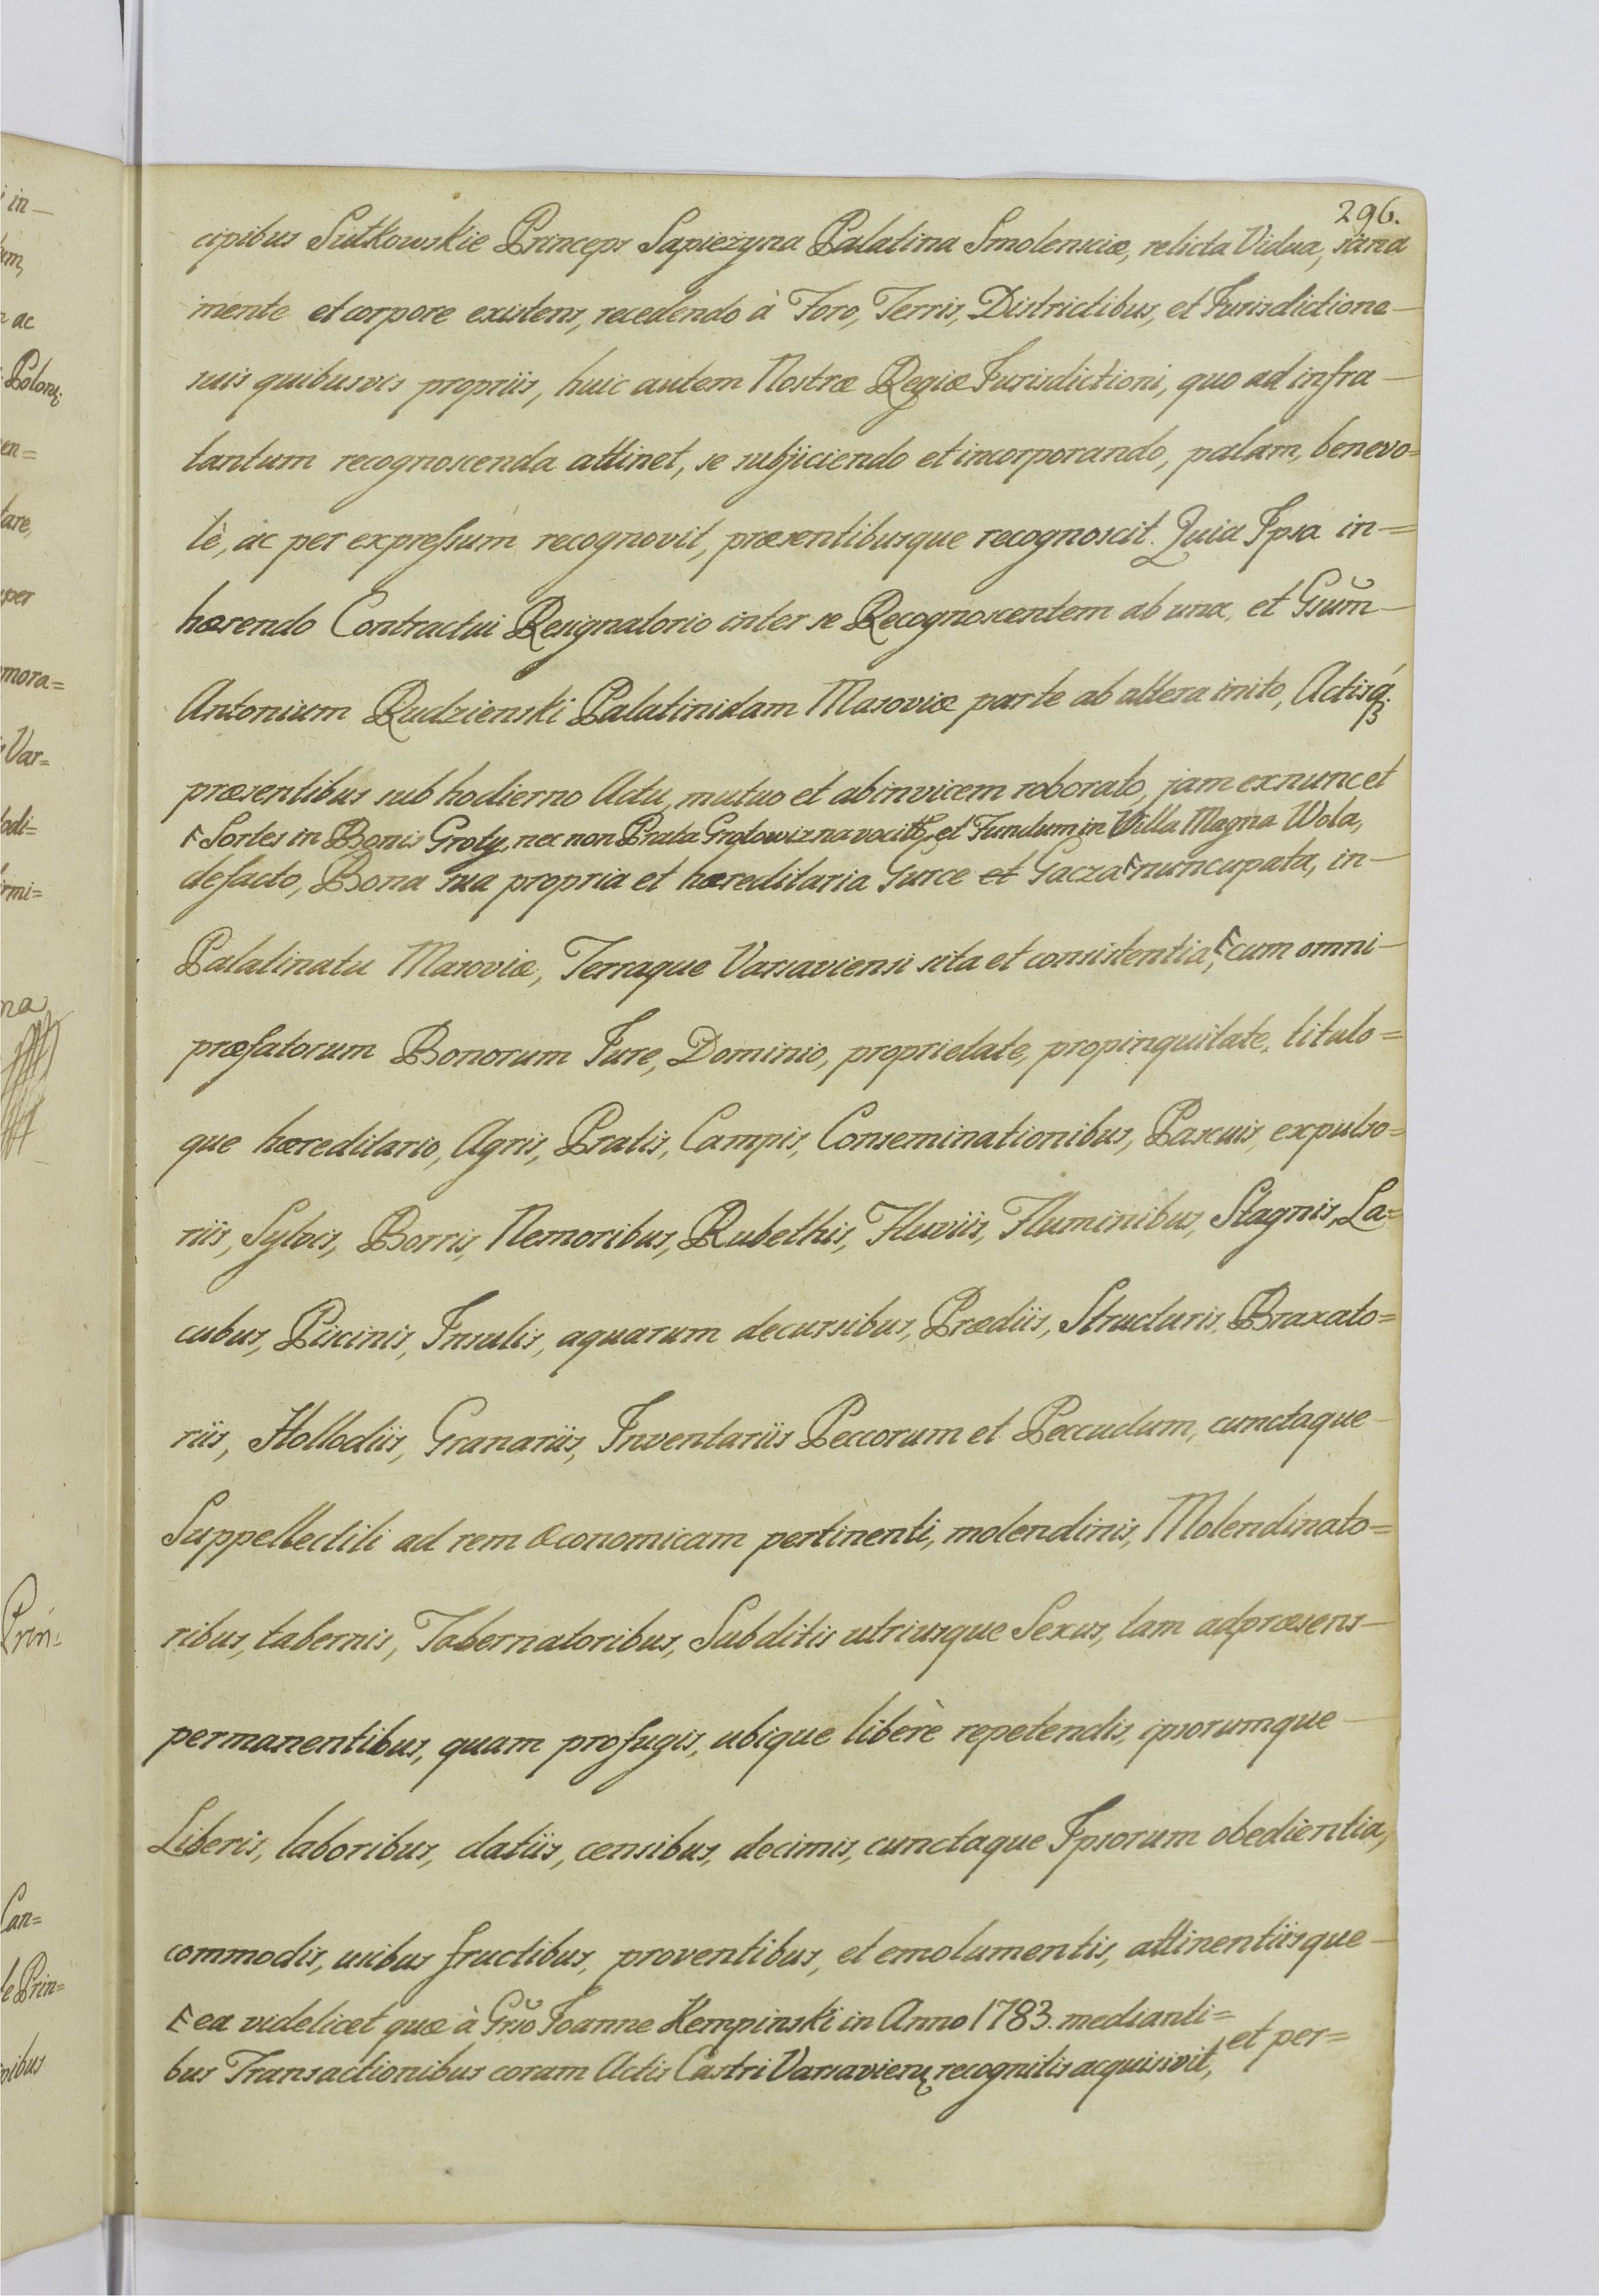 296.
cipibus Sułkowskie Princeps Sapieżyna Palatina Smolensciæ, relicta Vidua, sana
mente et corpore existens, recedendo à Foro, Terris, Districtibus, et Jurisdictione
suis quibusvis propriis, huic autem Nostræ Regiæ Jurisdictioni, quo ad infra
tantum recognoscenda attinet, se subjiciendo et incorporando, palam, benevo=
lè, ac per expressum recognovit, præsentibusque recognoscit. Quia Ipsa in=
hærendo Contractui Resignatorio inter se Recognoscentem ab una, et Gsum̃
Antonium Rudzienski Palatinidam Masoviæ parte ab altera inito, Actisq́;
præsentibus sub hodierno Actu, mutuo et abinvicem roborato, jam exnunc et
Ғ Sortes in Bonis Groty, nec non Prata Grotowizna vocitt, et Fundum in Villa Magna Wola,
defacto, Bona sua propria et hæreditaria Gurce et Gacza Ғ nuncupata, in
Palatinatu Masoviæ, Terraque Varsaviensi sita et consistentia, Ғ cum omni
præfatorum Bonorum Jure, Dominio, proprietate, propinquitate, titulo=
que hæreditario, Agris, Pratis, Campis, Conseminationibus, Pascuis, expulso=
riis, Sylvis, Borris, Nemoribus, Rubethis, Fluviis, Fluminibus, Stagnis, La=
cubus, Piscinis, Insulis, aquarum decursibus, Prædiis, Structuris, Braxato=
riis, Hollodiis, Granariis, Inventariis Peccorum et Peccudum, cunctaque
Suppellectili ad rem œconomicam pertinenti, molendinis, Molendinato=
ribus, tabernis, Tabernatoribus, Subditis utriusque Sexus, tam adpræsens
permanentibus, quam profugis, ubique liberè repetendis, ipsorumque
Liberis, laboribus, datiis, censibus, decimis, cunctaque Ipsorum obedientia,
commodis, usibus fructibus, proventibus, et emolumentis, attinentiisque
Ғ ea videlicet quæ à Grso Joanne Kempinski in Anno 1783. medianti=
bus Transactionibus coram Actis Castri Varsavien recognitis acquisivit, et per=